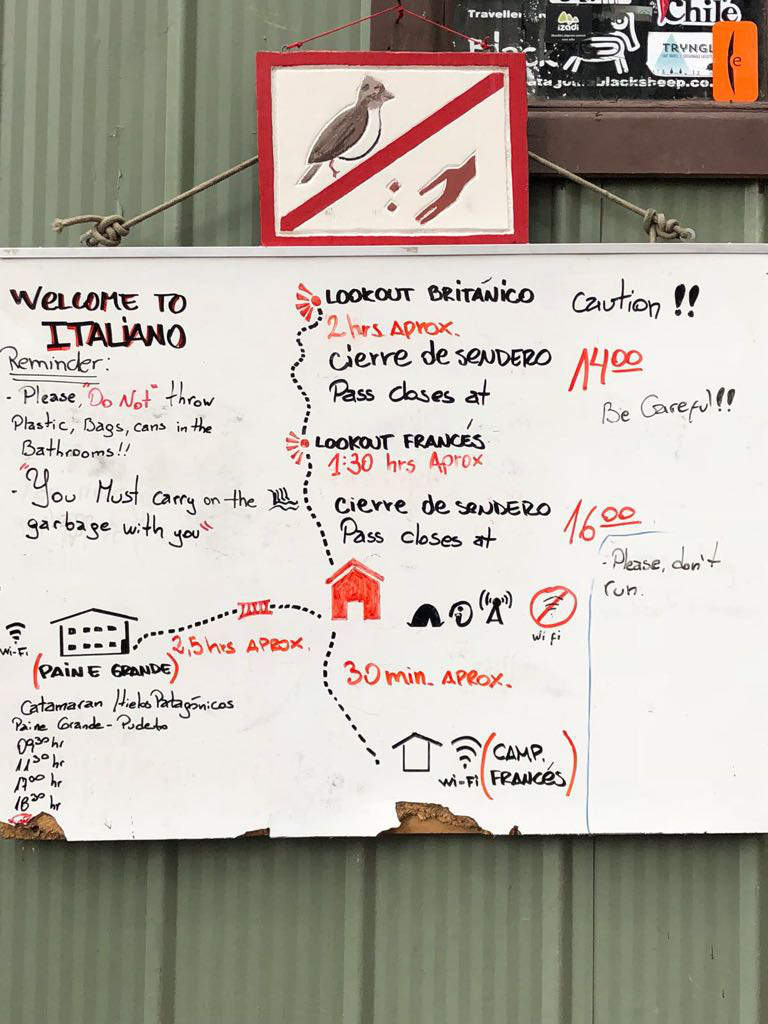 Traveller
izadi
Chile
TRYNGL
blacksheep.co
e
WELCOME TO
ITALIANO
Reminder:
- Please, "Do Not" throw
Plastic, Bags, cans in the
Bathrooms!!
- "You Must carry on the
garbage with you"
LOOKOUT BRITÁNICO
2 hrs APROX.
cierre de SENDERO
Pass closes at
14:00
LOOKOUT FRANCÉS
1:30 hrs Aprox
cierre de SENDERO
Pass closes at
16:00
Caution !!
Be Careful!!
- Please, don't
run.
Wi-Fi
(PAINE GRANDE)
2,5 hrs APROX.
wifi
30 min. APROX.
Wi-Fi
(CAMP.
FRANCÉS)
Catamaran Hielos Patagónicos
Paine Grande - Pudeto
09:30 hr
11:30 hr
17:00 hr
18:30 hr